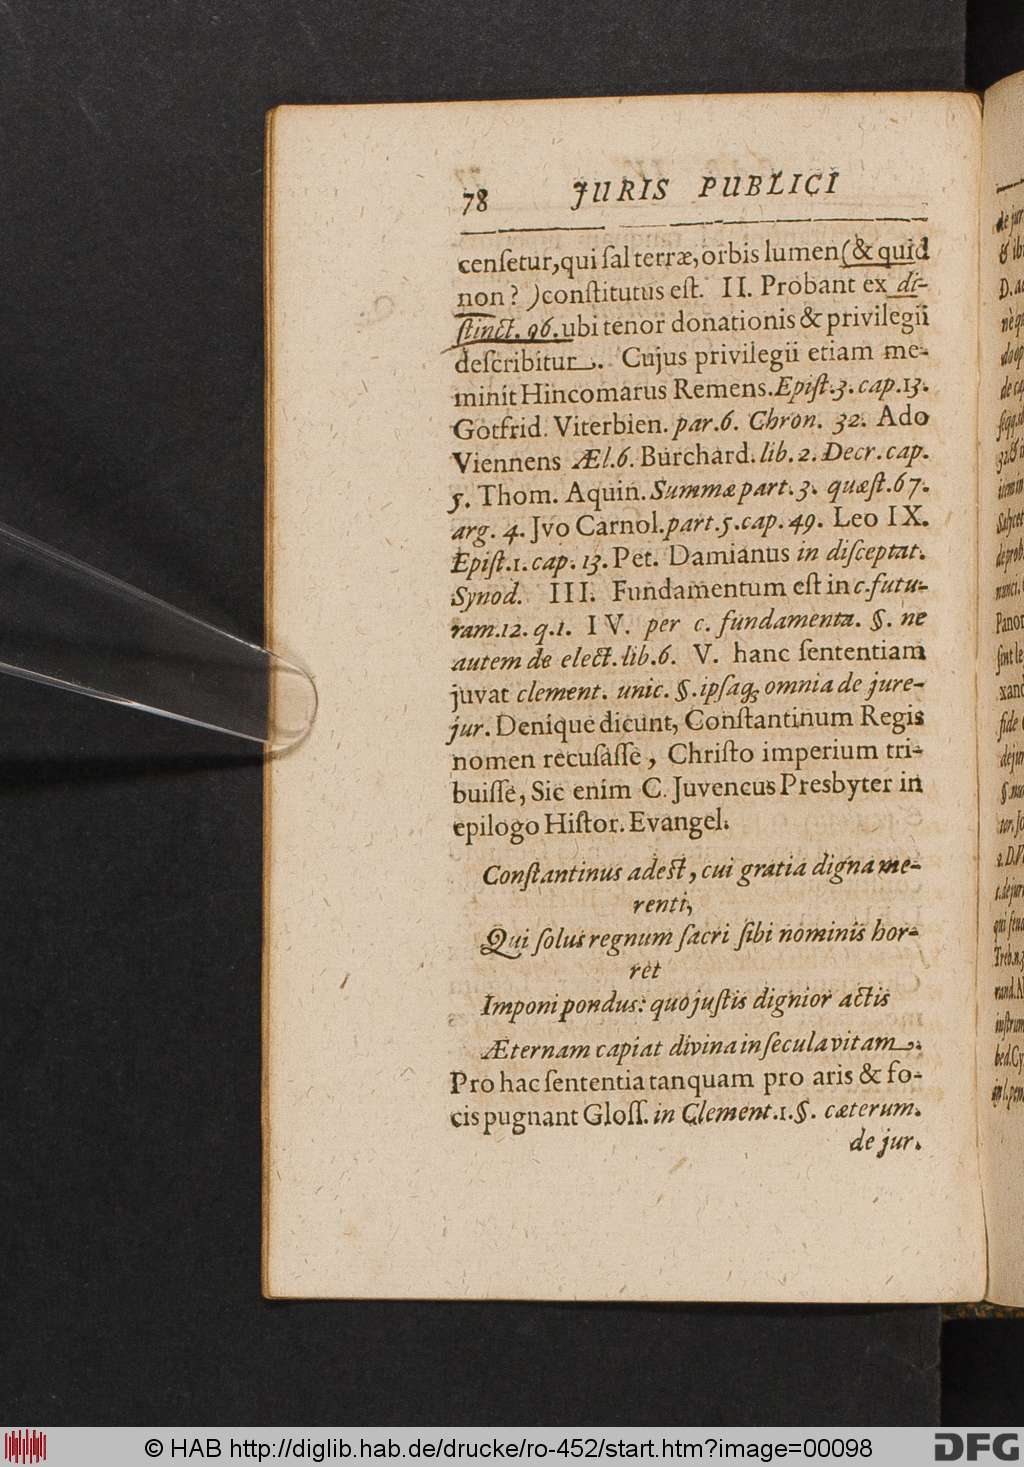 78 JURIS PUBLICI
cenſetur, qui ſal terræ, orbis lumen (& quid
non? ) conſtitutus eſt. II. Probant ex di-
ſtinct. 96. ubi tenor donationis & privilegii
deſcribitur. Cujus privilegii etiam me-
minit Hincomarus Remens. Epiſt. 3. cap. 13.
Gotfrid. Viterbien. par. 6. Chron. 32. Ado
Viennens Æl. 6. Burchard. lib. 2. Decr. cap.
5. Thom. Aquin. Summæ part. 3. quæſt. 67.
arg. 4. Jvo Carnol. part. 5. cap. 49. Leo IX.
Epiſt. 1. cap. 13. Pet. Damianus in diſceptat.
Synod. III. Fundamentum eſt in c. futu-
ram. 12. q. 1. IV. per c. fundamenta. §. ne
autem de elect. lib. 6. V. hanc ſententiam
juvat clement. unic. §. ipſaq; omnia de jure-
jur. Denique dicunt, Conſtantinum Regis
nomen recuſaſſe, Chriſto imperium tri-
buiſſe, Sic enim C. Juvencus Presbyter in
epilogo Hiſtor. Evangel.
Conſtantinus adeſt, cui gratia digna me-
renti,
Qui ſolus regnum ſacri ſibi nominis hor-
ret
Imponi pondus: quo juſtis dignior actis
Æternam capiat divina in ſecula vitam.
Pro hac ſententia tanquam pro aris & fo-
cis pugnant Gloſſ. in Clement. 1. §. cæterum.
de jur.
© HAB http://diglib.hab.de/drucke/ro-452/start.htm?image=00098
DFG